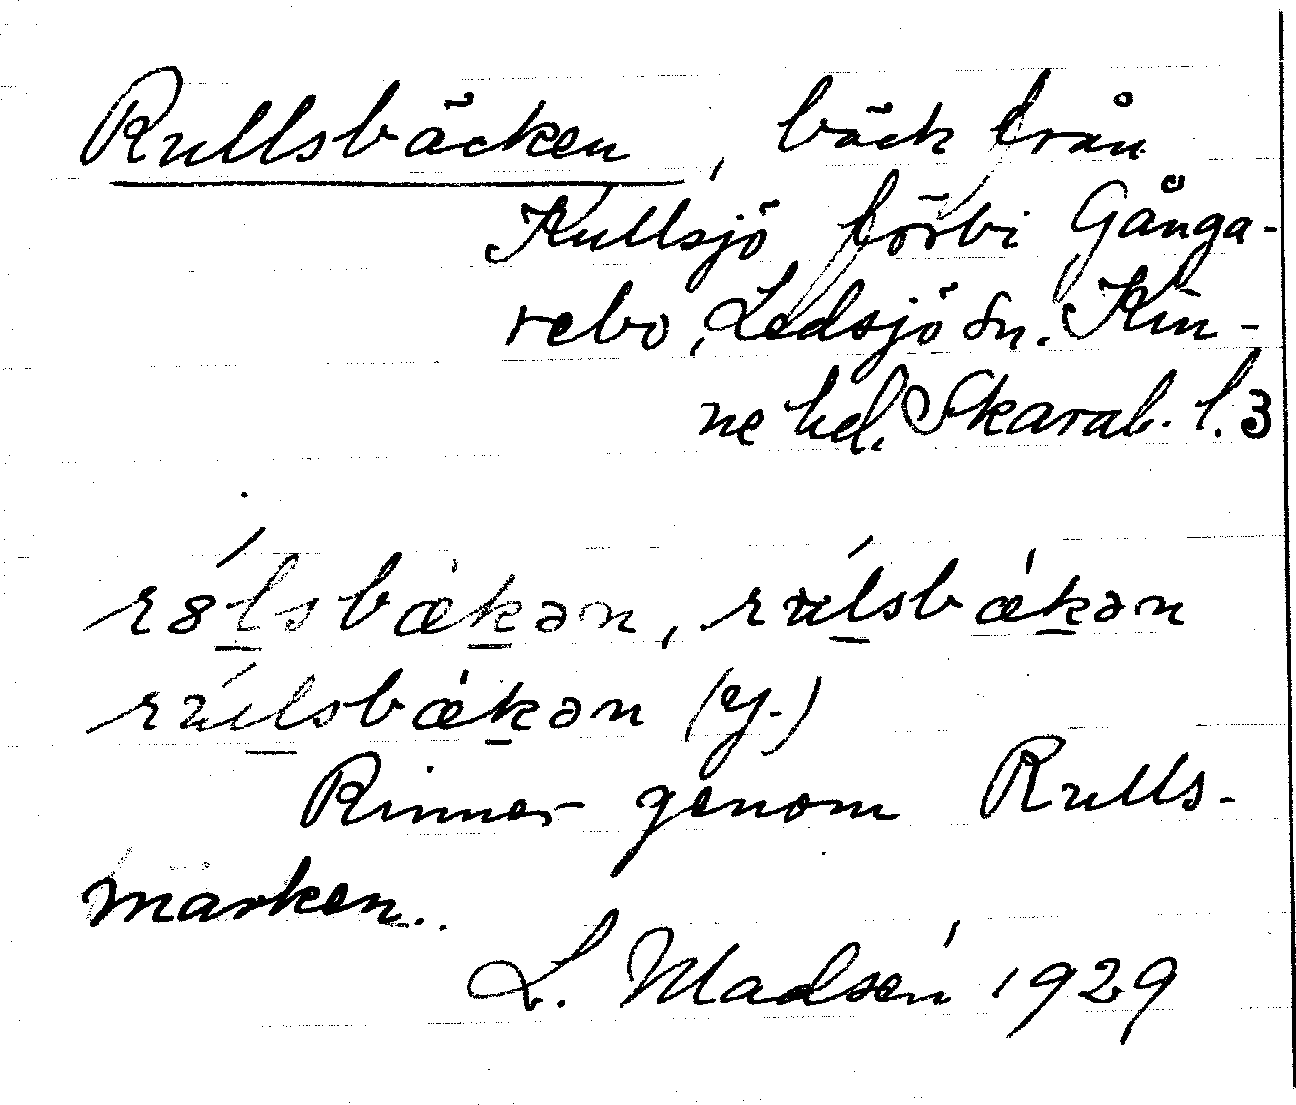 Rullsbäcken, bäck från
Kullsjö förbi Gånga-
rebo, Ledsjö sn. Kin-
ne hd. Skarab. l. 3
rólsbǽkən, rúlsbǽkən
rúlsbǽkən (y.)
Rinner genom Rulls-
marken.
L. Madsén 1929